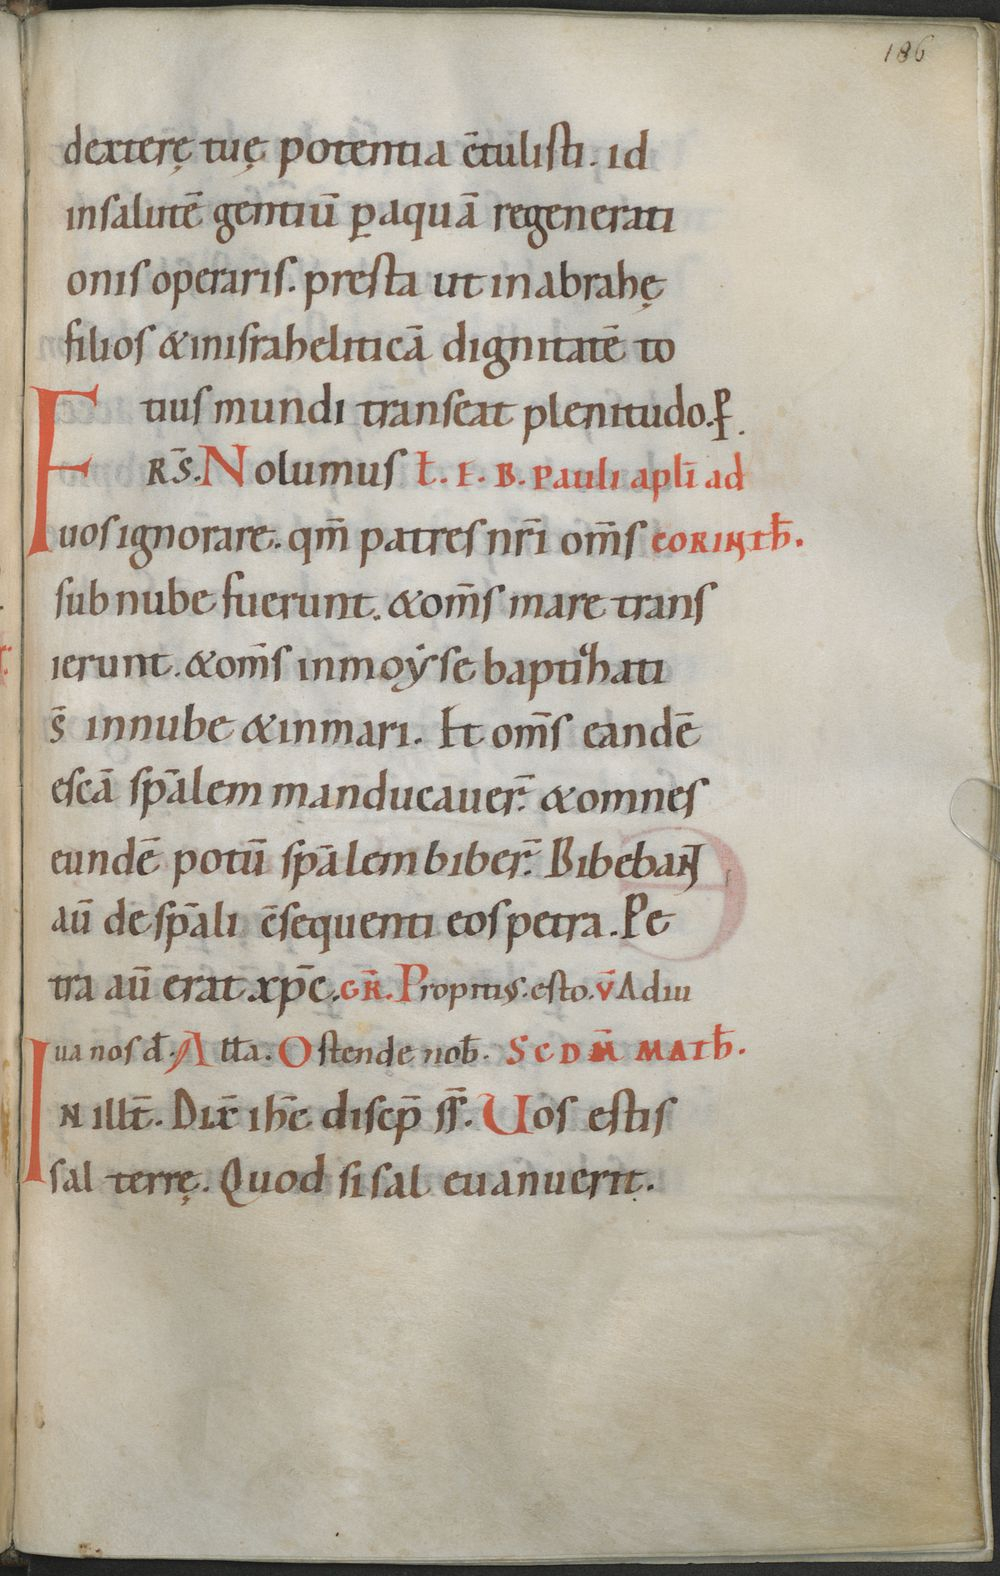 186
dexterę tuę potentia c̄tulisti. id
insalutē gentiū ꝑaquā regenerati
onis operaris. presta ut inabrahę
filios &inisraheliticā dignitatē to
tius mundi transeat plenitudo. ꝑ.
FRS̄. Nolumus ł. E. B. Pauli apl̄i ad
uos ignorare. qm̄ patres nr̄i om̄s CORINTħ.
sub nube fuerunt. &om̄s mare trans
ierunt. &om̄s inmoẏse baptizati
s̄ innube &inmari. Et om̄s eandē
escā sp̄alem manducauer̄. &omnes
eundē potū sp̄alem biber̄. Bibebant
aū de sp̄ali c̄sequenti eos petra. Pe
tra aū erat xp̄c. GR̄. Propitius. esto. v̄ Adiu
ua nos d̄. Atła. Ostende nob̄. SCDM̄ MATħ.
IN illt̄. Dix̄ ihc̄ discp̄ ss̄. Uos estis
sal terrę. Quod si sal euanuerit.